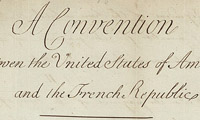 A Convention
ween the United States of Am
and the French Republic